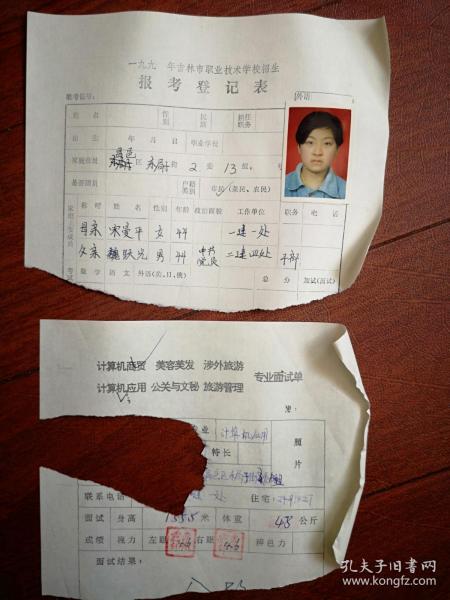 一九九 年吉林市职业技术学校招生
报考登记表
准考证号:
外语
姓名 性别 民族 担任职务
出生 年 月 日 毕业学校
家庭住址 昌邑 区 东局 街 2 委 13 组
是否团员 户籍类别 市民(菜民、农民)
称呼 姓名 性别 年龄 政治面貌 工作单位 职务 电话
母亲 宋爱平 女 44 一建一处
父亲 魏跃光 男 44 中共党员 二建四处 干部
数学 语文 外语(英、日、俄) 总分 加试(面试)
计算机商贸 美容美发 涉外旅游
计算机应用 公关与文秘 旅游管理
专业面试单
业 计算机应用 照片
特长
联系电话 建一处 住宅:
面试 身高 1.555米 体重 43 公斤
成绩 视力 左眼 右眼 辨色力
面试结果:
孔夫子旧书网
www.kongfz.com